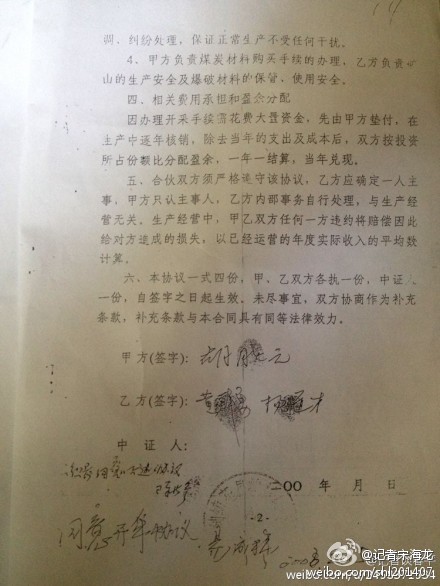 调、纠纷处理，保证正常生产不受任何干扰。
4、甲方负责煤炭材料购买手续的办理，乙方负责矿
山的生产安全及爆破材料的保管、使用安全。
四、相关费用承担和盈余分配
因办理开采手续需花费大量资金，先由甲方垫付，在
生产中逐年核销，除去当年的支出及成本后，双方按投资
所占份额比分配盈余，一年一结算，当年兑现。
五、合伙双方须严格遵守该协议，乙方应确定一人主
事，甲方只认主事人，乙方内部事务自行处理，与生产经
营无关。生产经营中，甲乙双方任何一方违约将赔偿因此
给对方造成的损失，以已经运营的年度实际收入的平均数
计算。
六、本协议一式四份，甲、乙双方各执一份，中证人
一份，自签字之日起生效。未尽事宜，双方协商作为补充
条款，补充条款与本合同具有同等法律效力。
甲方(签字)：
乙方(签字)：
中证人：
二00 年 月 日
-2-
同意
@记者宋海龙
weibo.com/shl201407